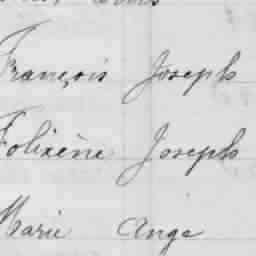 François Joseph
Folixène Joseph
Marie Ange